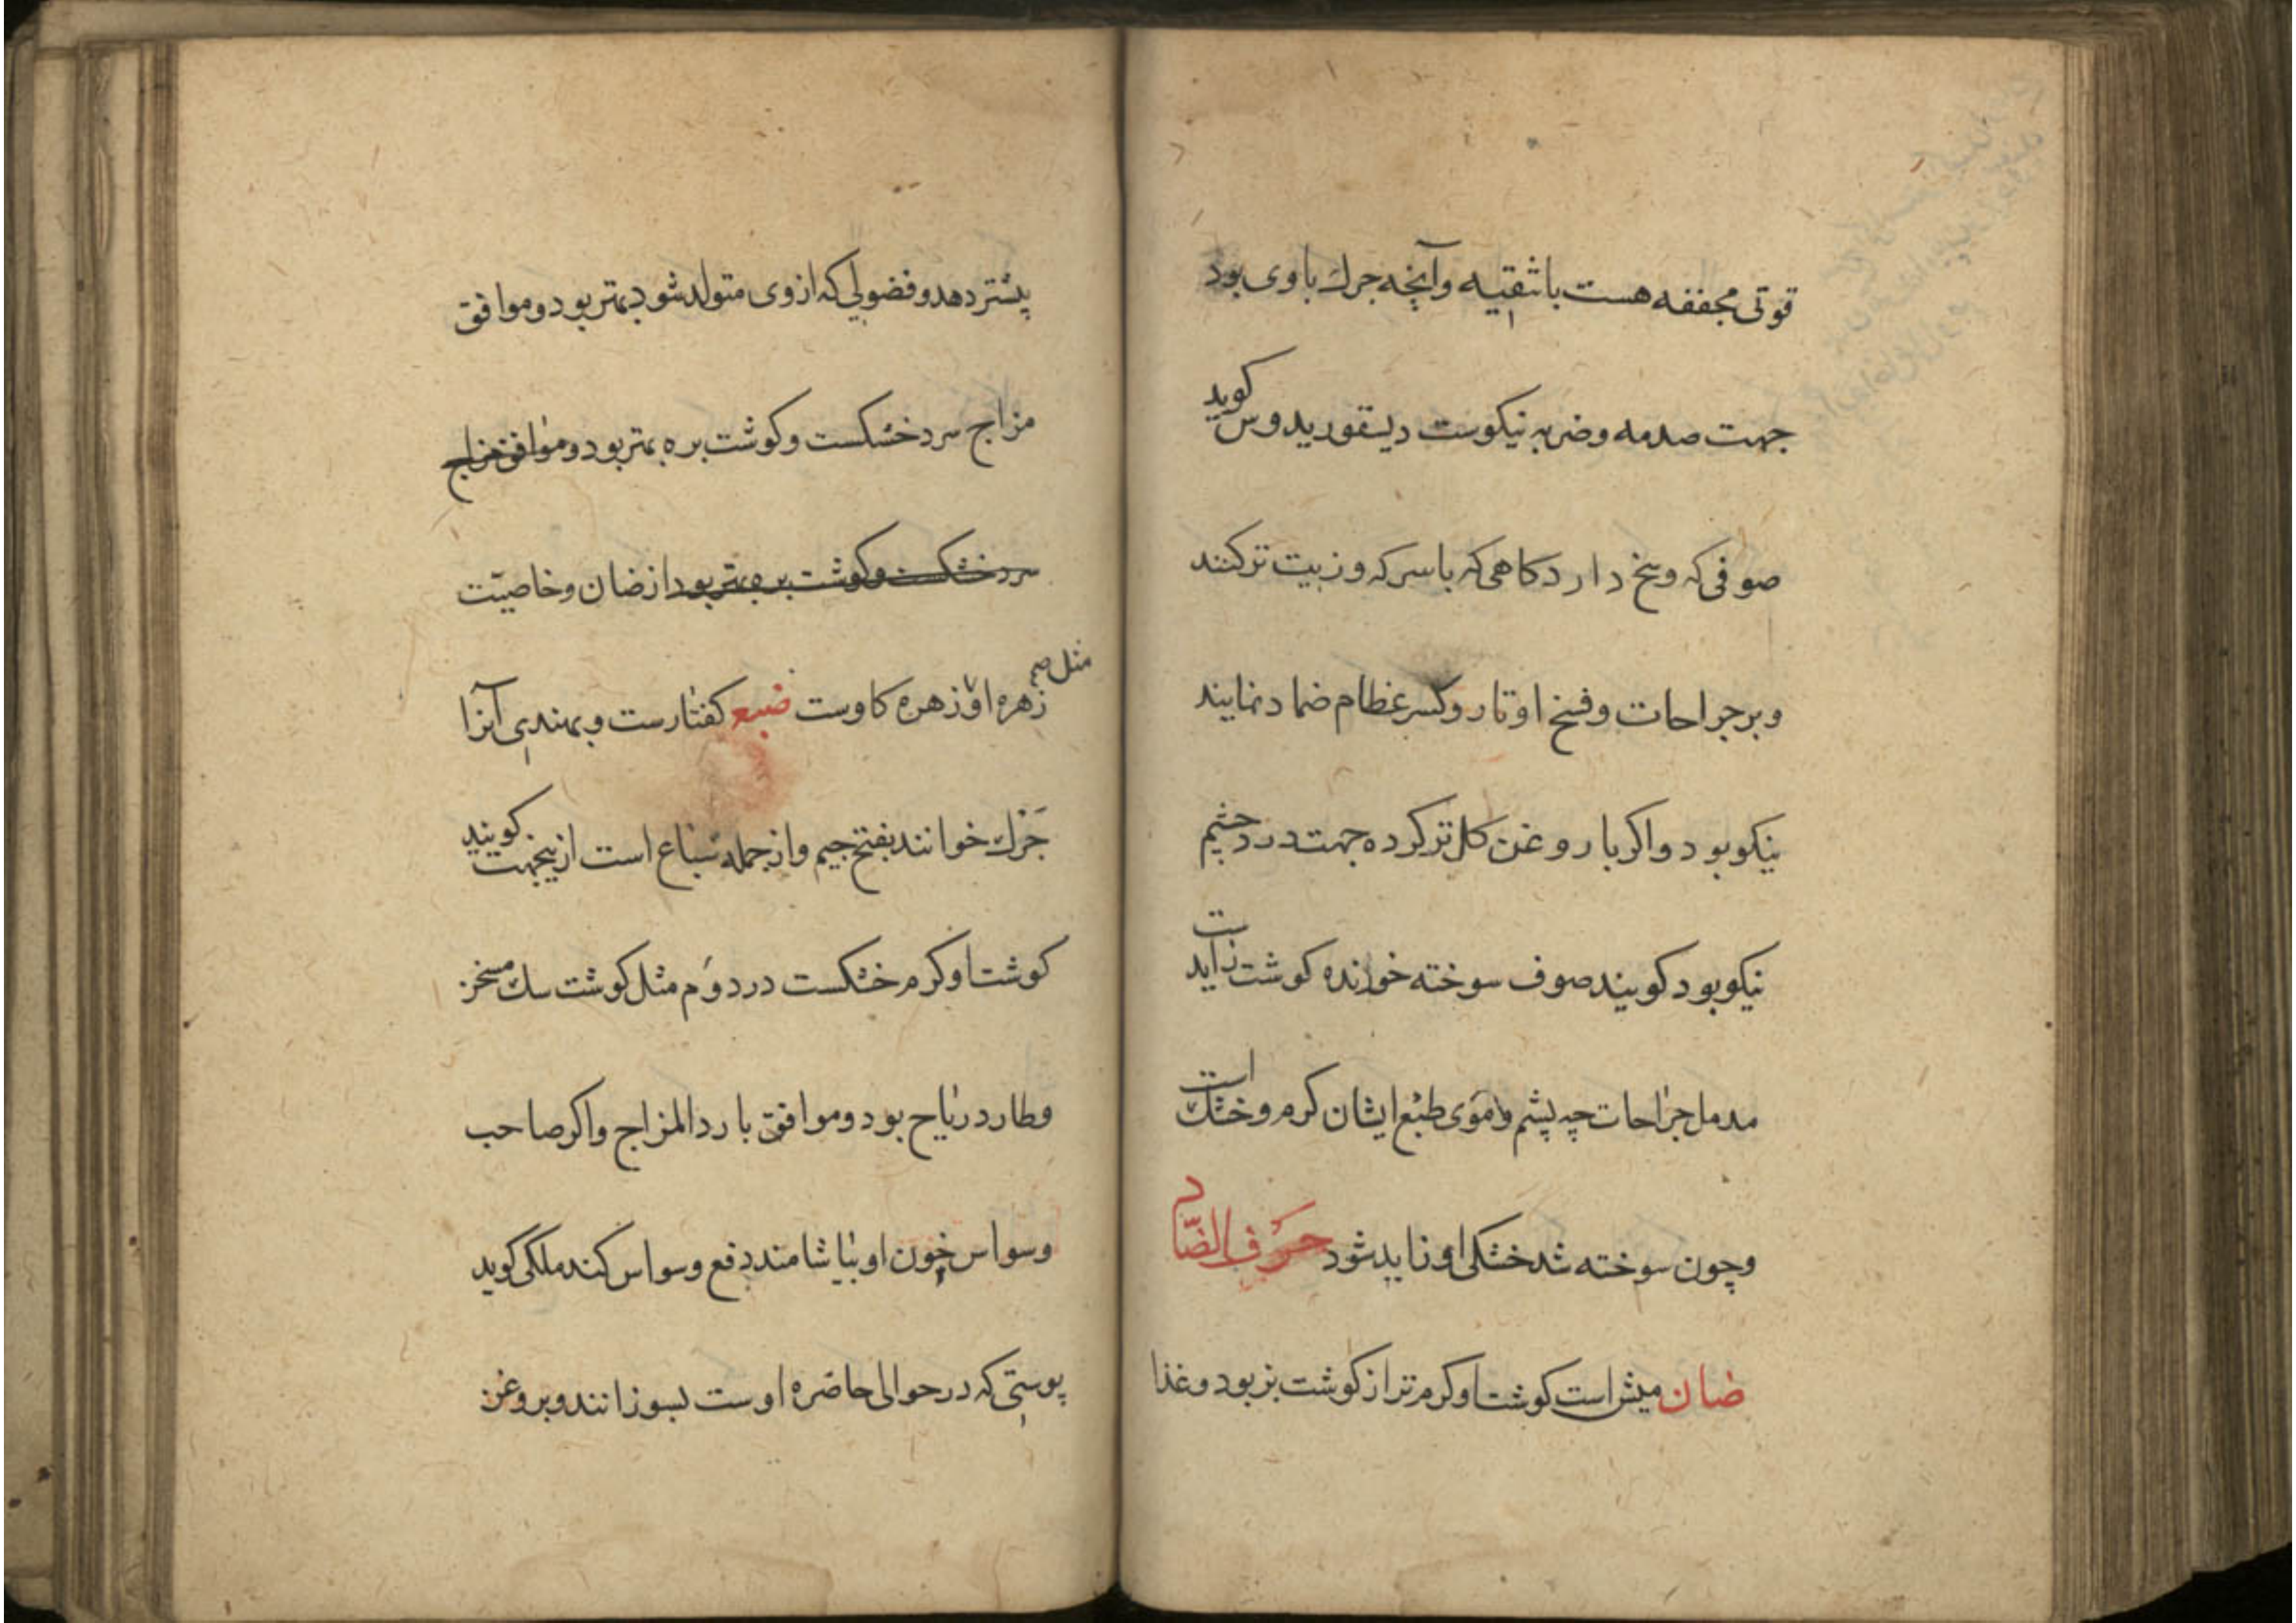 قوتی مجففه هست با تنقیه وآنچه جرك باوی بود
جهت صدمه وضربه نیکوست دیسقوریدوس کوید
صوفی که وسخ دارد کاهی که باسرکه وزیت ترکنند
وبرجراحات وفسخ اوتار وکسر عظام ضماد نمایند
نیکو بود واکر با روغن کل ترکرده جهت درد چشم
نیکو بود کویند صوف سوخته خوانده کوشت زایدست
مدمل جراحات چه پشم وموی طبع ایشان کرم وخشك است
وچون سوخته شد خشکی او زاید شود حرف الضاد
ضان میش است کوشت اوکرم تر از کوشت بز بود وغذا
بیشتر دهد وفضولی که ازوی متولد شود بهتر بود وموافق
مزاج سرد خشکست وکوشت بره بهتر بود وموافق مزاج
سرد خشکست وکوشت بره بهتر بود از ضان وخاصیّت
زهره او مثل زهره کاوست ضبع کفتارست وبهندی آنرا
جَرك خوانند بفتح جیم واز جمله سباع است ازینجهت کویند
کوشت اوکرم خشکست در دوم مثل کوشت سك مسخن
وطارد ریاح بود وموافق بارد المزاج واکر صاحب
وسواس خون او بیاشامند دفع وسواس کند ملکی کوید
پوستی که در حوالی خاصره اوست بسوزانند وبروغن